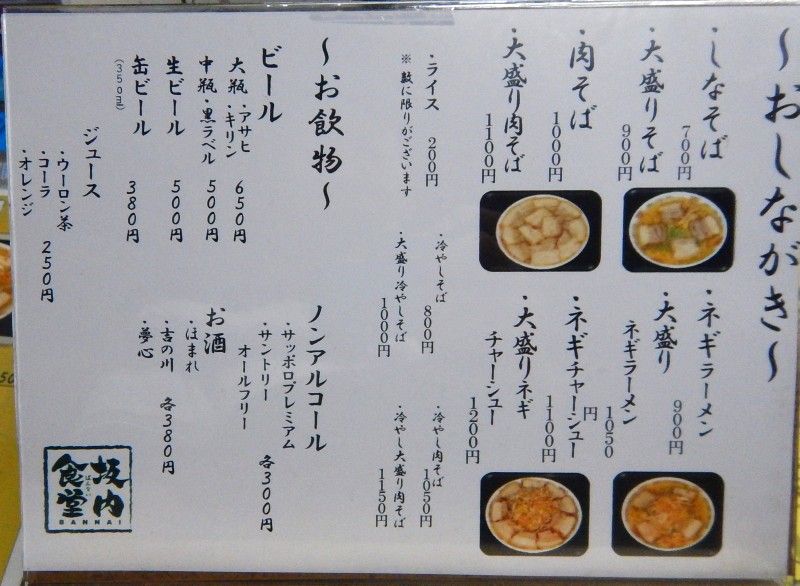 ～おしながき～
・しなそば
700円
・大盛りそば
900円
・肉そば
1000円
・大盛り肉そば
1100円
・ネギラーメン
900円
・大盛り
ネギラーメン
1050
円
・ネギチャーシュー
1100円
・大盛りネギ
チャーシュー
1200円
・ライス 200円
※ 数に限りがございます
・冷やしそば
800円
・大盛り冷やしそば
1000円
・冷やし肉そば
1050円
・冷やし大盛り肉そば
1150円
～お飲物～
ビール
大瓶・アサヒ
・キリン 650円
中瓶・黒ラベル 500円
生ビール 500円
缶ビール 380円
(350㎖)
ジュース
・ウーロン茶
・コーラ 250円
・オレンジ
ノンアルコール
・サッポロプレミアム
・サントリー
オールフリー 各300円
お酒
・ほまれ
・吉の川 各380円
・夢心
坂内
食堂
ばんない
BANNAI